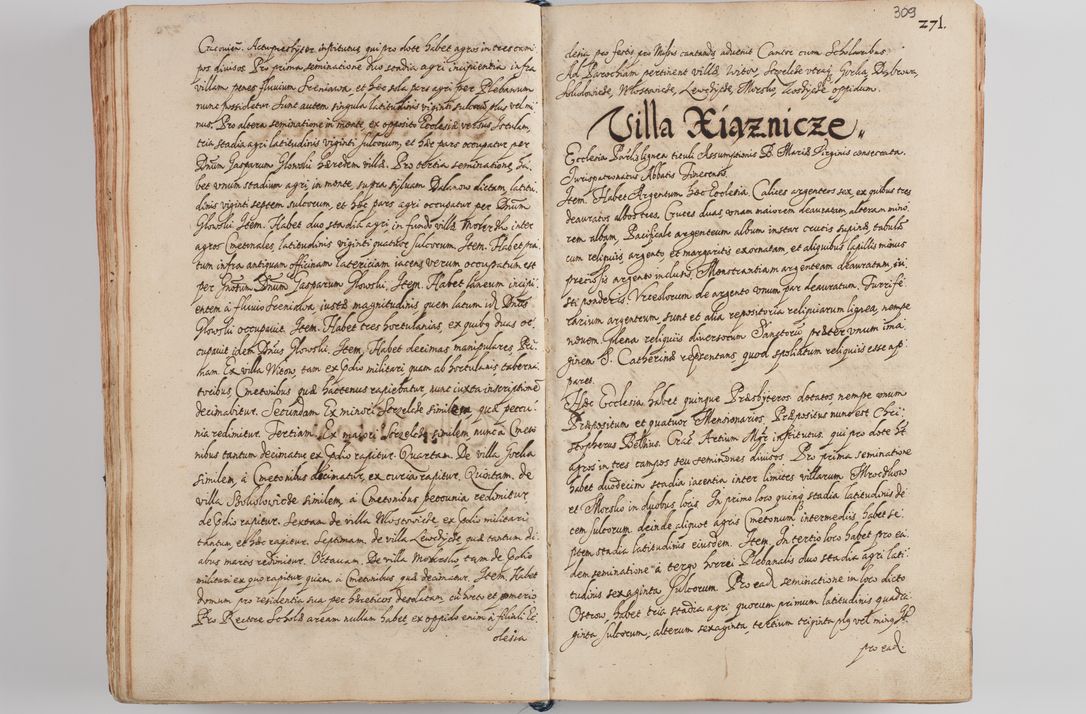 Cracovien. Actu presbyter institutus, qui pro dote habet agros in tres cam
pos divisos. Pro prima seminatione duo stadia agri incipientia infra
villam penes fluvium Sreniawa, et hæc sola pars agri per Plebanum
nunc possidetur. Sunt autem singula latitudinis viginti sulcorum, plus vel mi
nus. Pro altera seminatione in monte, ex opposito Ecclesiæ versus
tria stadia agri latitudinis viginti sulcorum, et hæc pars occupatur per
Dnum Gasparum Glowski hæredem villæ. Pro tertia seminatione, ha
bet vnum stadium agri, in monte, supra syluam Dalanow dictam, latitu
dinis viginti septem sulcorum, et hæc pars agri occupatur per Dnum
Glowski. Item. Habet duo stadia agri in fundo villæ inter
agros Cmetonales, latitudinis viginti quatuor sulcorum. Item. Habet pra
tum infra antiquam officinam latericiam iacens verum occupatum est
per Gnosum Dnum Gasparum Glowski. Item. Habet laneum incipi
entem à fluvio Sreniawa, iustæ magnitudinis, quem latum id Dnus
Glowski occupauit. Item. Habet tres hortulanias, ex quibq duas oc
cupauit idem Dnus Glowski. Item. Habet decimas manipulares, Pri
mam. Ex villa Witow, tam ex prædio militari quam ab hortulanis taberna
toribus Cmetonibus quæ hactenus rapiebatur, nunc iuxta inscriptione
decimabitur. Secundam Ex minori Strzelcze similem, quæ pecu
nia redimitur. Tertiam. Ex maiori Strzelcze similem nunc à Cmeto
nibus tantum decimatur ex prædio rapitur. Quartam. De villa Gorka
similem, à Cmetonibus decimatur, ex curia rapitur. Quintam. de
villa similem, à Cmetonibus pecunia redimitur
de prædio rapitur. Sextam de villa ex prædio militari
tantum, et hæc rapitur. Septimam. de villa quæ tantum di
abus marcis redimitur. Octauam. De villa Morsko, tam de prædio
militari ex quo rapitur quam à Cmetonibus quæ decimatur. Item. Habet
domum pro residentia sua per hæreticos desolatam, cū horto et pomerio
Pro Rectore Scholæ aream nullam habet ex oppido enim à filiali Ec
clesia
309
271.
clesia pro festis pro Missis cantandis aduenit Cantor cum Scholaribus.
Ad Parochiam pertinent villæ, Witow, Strzelcze vtraq, Gorka, Dobrow,
Morsko, oppidum.
Villa Xiąznicze
Ecclesia Paroch. lignea tituli Assumptionis B. Mariæ Virginis consecrata.
Iurispatronatus Abbatis
Item. Habet Argentum hæc Ecclesia. Calices argenteos sex, ex quibus tres
deauratos albos tres, Cruces duas, vnam maiorem deauratam, alteram mino
rem albam, Pacificale argenteum album instar crucis tabulæ
cum reliquiis argento et margaritis exornatam, et aliquibus lapillis minus
preciosis argento inclusis, Monstrantiam argenteam deauratam, iu
sti ponderis, Vrceolorum de argento vnum par deauratum. Turrife
rarium argenteum, sunt et alia repositoria reliquiarum lignea, nempe
nouem plena reliquiis diuersorum Sanctorū præter vnum ima
ginem S. Catherinæ repsentans, quod spoliatum reliquiis esse ap
paret.
Hæc Ecclesia habet quinque Præsbyteros dotatos nempe vnum
Præpositum et quatuor Mensionarios. Præpositus nunc est Chri
stopherus Crac. Artium Mgr institutus, qui pro dote ht
agros in tres campos seu seminones diuisos. Pro prima seminatione
habet duodecim stadia iacentia inter limites villarum
et Morsko in duobus locis. In primo loco quinq stadia latitudinis de
cem sulcorum deinde aliquot agris Cmetonum intermediis habet se
ptem stadia latitudinis eiusdem. Item, In tertio loco habet pro ea
dem seminatione à tergo horrei Plebanalis duo stadia agri lati
tudinis sexaginta sulcorum. Pro ead seminatione in loco dicto
Ostrow, habet tria stadia agri quorum primum latitudinis quadra
ginta sulcorum, alterum sexaginta, tertium triginta plq vel minq
pro ead.